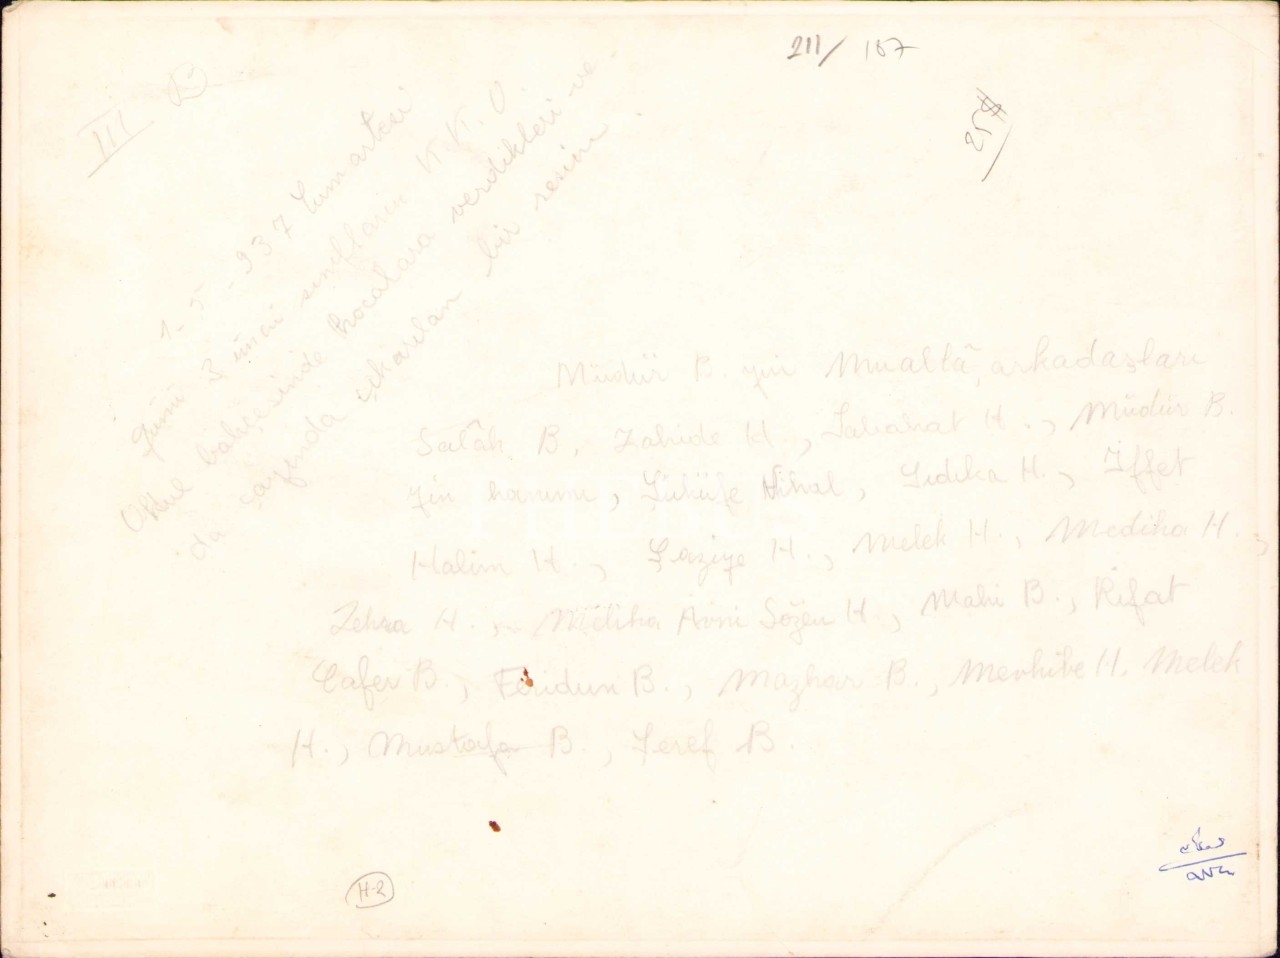 211/ 107
257
III B
1-5-937 Cumartesi
günü 3 üncü sınıfların K.K.O
Okul bahçesinde Hocalara verdikleri ve
da çayında çıkarılan bir resim.
Müdür B. yin Mualtâ, arkadaşları
Salâh B, Zahide H, Sabahat H., Müdür B.
yin hanımı, Şükûfe Nihal, Sıdıka H., İffet
Halim H., Şaziye H., Melek H., Mediha H.,
Zehra H., Meliha Avni Sözen H, Mahi B., Rifat
Cafer B., Feridun B., Mazhar B., Mevhibe H. Melek
H., Mustafa B., Şeref B.
H-2